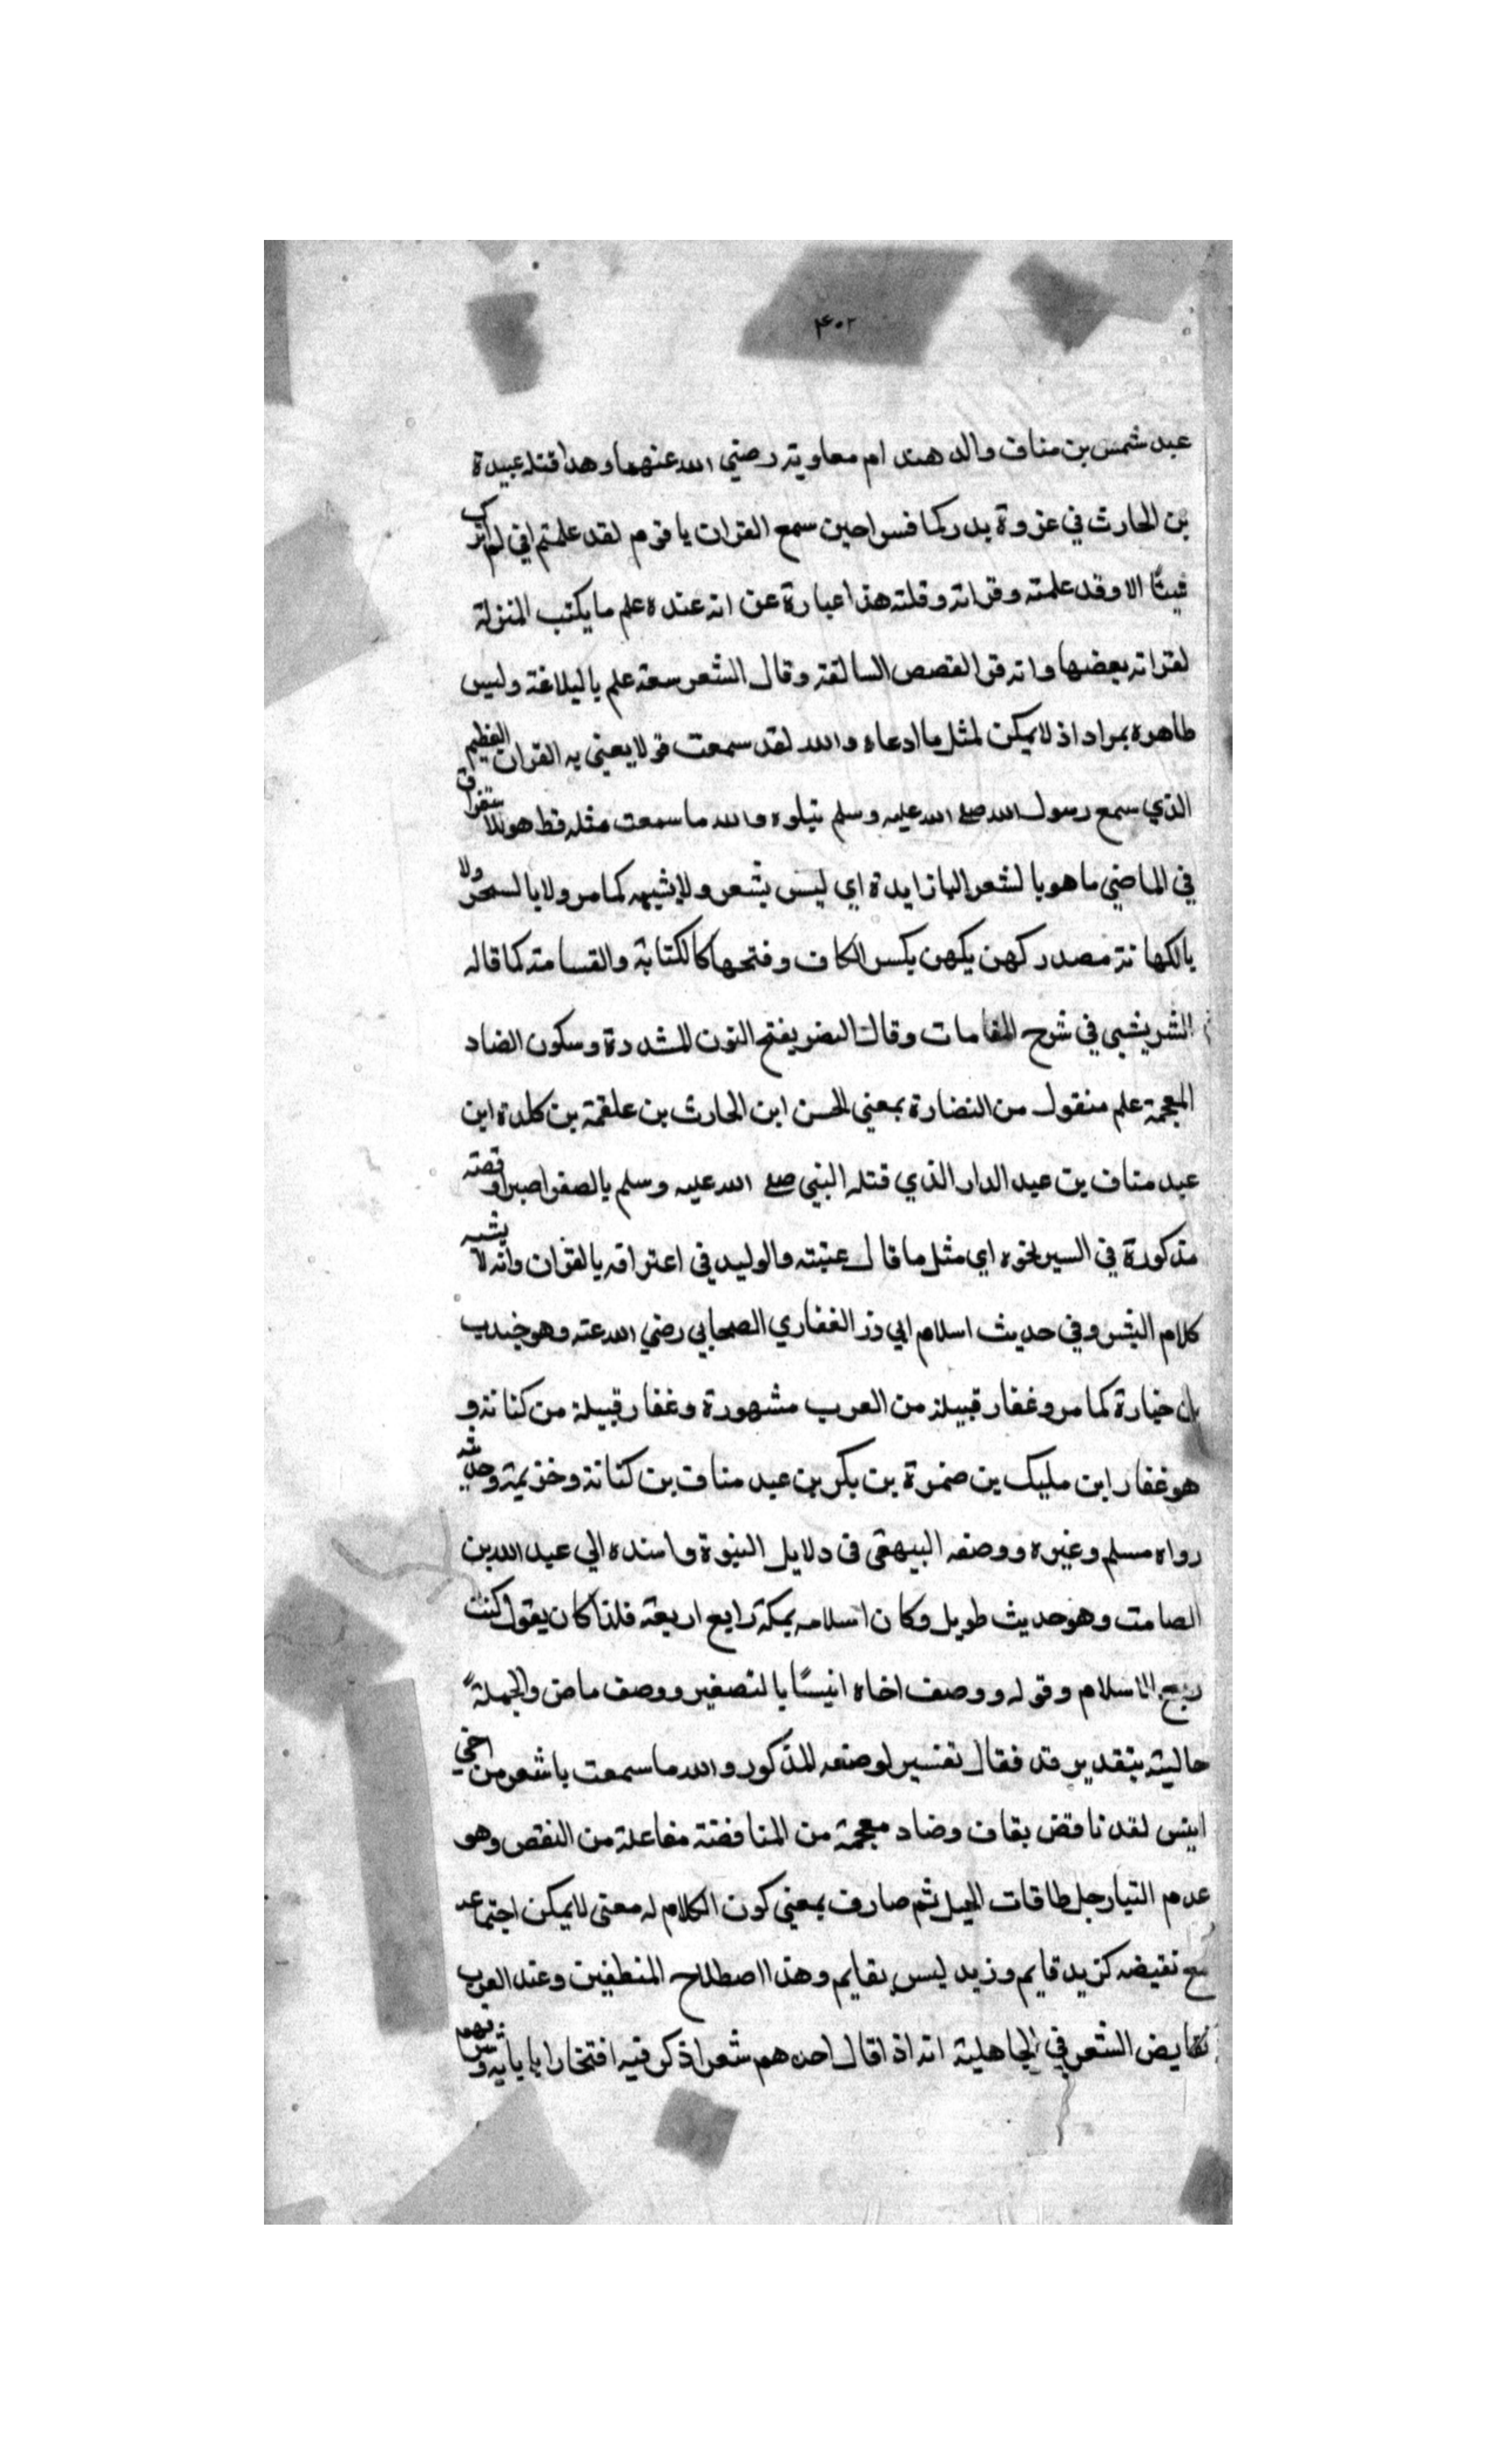 ٤٠٢
عبد شمس بن مناف والد هند ام معاوية رضي الله عنهما وهذا قتله عبيدة
بن الحارث في غزوة بدر كافسرا حين سمع القران يا قوم لقد علمتم اني لم اترك
شيئا الا وقد علمته وقراته وقلته هذا عبارة عن انه عنده علم ما يكتب المنزلة
لقراته بعضها وانه قرا القصص السالفة وقال الشعر سعة علم بالبلاغة وليس
ظاهره بمراد اذ لا يمكن لمثل ما ادعاه والله لقد سمعت قولا يعني به القران العظيم
الذي سمع رسول الله صلى الله عليه وسلم يتلوه والله ما سمعت مثله قط هو للاستغراق
في الماضي ما هو بالشعر البا زايدة اي ليس بشعر ولا يشبهه كما مر ولا بالسحر ولا
بالكهانة مصدر كهن يكهن بكسر الكاف وفتحها كالكتابة والقسامة كما قاله
الشريشي في شرح المقامات وقال النضر بفتح النون المشددة وسكون الضاد
المعجمة علم منقول من النضارة بمعني الحسن ابن الحارث بن علقمة بن كلدة ابن
عبد مناف بن عبد الدار الذي قتله النبي صلى الله عليه وسلم بالصفرا صبرا وقصته
مذكورة في السير نحوه اي مثل ما قال عتبة والوليد في اعترافه بالقران وانه لا يشبه
كلام البشر وفي حديث اسلام ابي ذر الغفاري الصحابي رضي الله عنه وهو جندب
بن جنادة كما مر وغفار قبيلة من العرب مشهورة وغفار قبيلة من كنانة و
هو غفار ابن مليك بن ضمرة بن بكر بن عبد مناف بن كنانة وخزيمة وحديثه
رواه مسلم وغيره ووصفه البيهقي في دلايل النبوة واسنده الي عبد الله بن
الصامت وهو حديث طويل وكان اسلامه بمكة رابع اربعة فلذا كان يقول كنت
ربع الاسلام وقوله ووصف اخاه انيسًا بالتصغير ووصف ماض والجملة
حالية بتقدير قد فقال تفسير لوصفه المذكور والله ما سمعت باشعر من اخي
انيس لقد ناقض بقاف وضاد معجمة من المناقضة مفاعلة من النقض وهو
عدم طاقات الحبل ثم صار بمعني كون الكلام له معني لا يمكن اجتماعه
مع نقيضه كزيد قايم وزيد ليس بقايم وهذا اصطلاح المنطقين وعند العرب
نقايض الشعر في الجاهلية انه اذا قال احدهم شعرا ذكر فيه افتخارا بابايه